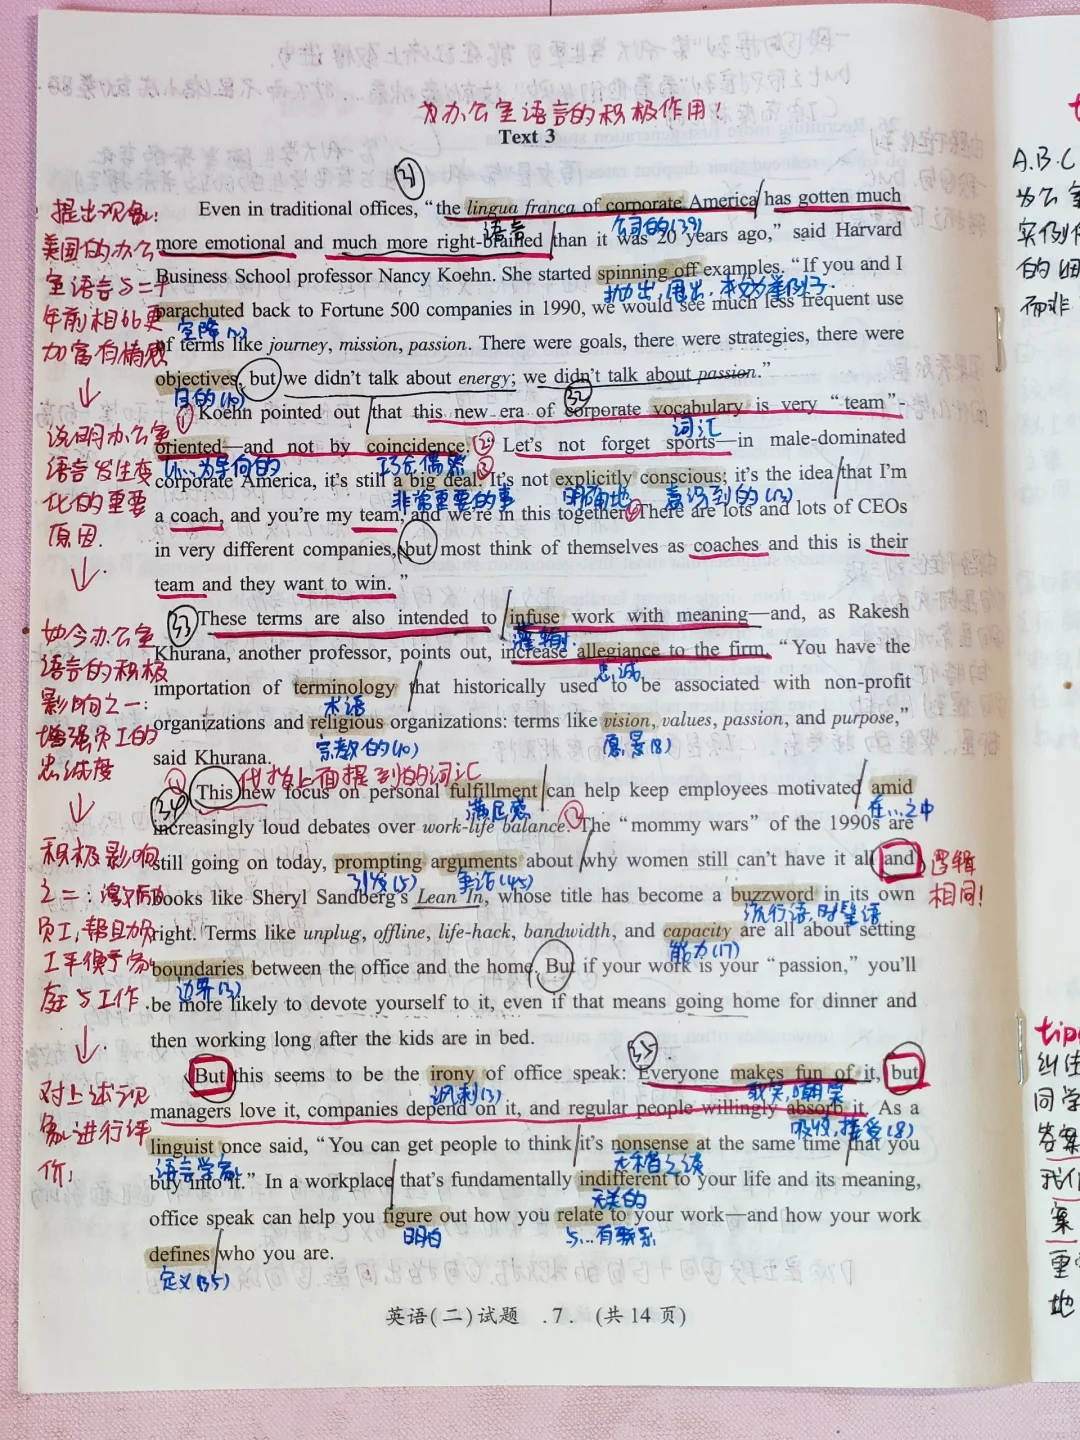 为办公室语言的积极作用！
Text 3
31
提出现象：
美国的办公
室语言与二十
年前相比更
加富有情感
↓
说明办公室
语言发生变
化的重要
原因.
↓
如今办公室
语言的积极
影响之一：
增强员工的
忠诚度
↓
积极影响
之二：激励
员工,帮助员
工平衡家
庭与工作.
↓
对上述现
象进行评
价！
Even in traditional offices, “the lingua franca of corporate America has gotten much
语言 公司的(39)
more emotional and much more right-brained than it was 20 years ago,” said Harvard
Business School professor Nancy Koehn. She started spinning off examples. “If you and I
抛出,甩出.本文为举例子.
parachuted back to Fortune 500 companies in 1990, we would see much less frequent use
空降(2)
of terms like journey, mission, passion. There were goals, there were strategies, there were
objectives, but we didn’t talk about energy; we didn’t talk about passion.”
目的(10) 32
① Koehn pointed out that this new era of corporate vocabulary is very “team”-
词汇
oriented—and not by coincidence. ② Let’s not forget sports—in male-dominated
以...为导向的 巧合,偶然 ③
corporate America, it’s still a big deal. It’s not explicitly conscious; it’s the idea that I’m
非常重要的事 明确地 意识到的(12)
a coach, and you’re my team, and we’re in this together. ④ There are lots and lots of CEOs
in very different companies, but most think of themselves as coaches and this is their
team and they want to win. ”
33 These terms are also intended to infuse work with meaning—and, as Rakesh
灌输
Khurana, another professor, points out, increase allegiance to the firm. “You have the
忠诚
importation of terminology that historically used to be associated with non-profit
术语
organizations and religious organizations: terms like vision, values, passion, and purpose,”
宗教的(10) 愿景(8)
said Khurana.
① 代指上面提到的词汇
34 This new focus on personal fulfillment can help keep employees motivated amid
满足感 在...之中
increasingly loud debates over work-life balance. ② The “mommy wars” of the 1990s are
still going on today, prompting arguments about why women still can’t have it all and
引发(5) 争论(45) 逻辑
相同!
books like Sheryl Sandberg’s Lean In, whose title has become a buzzword in its own
流行语,时髦语
right. Terms like unplug, offline, life-hack, bandwidth, and capacity are all about setting
能力(17)
boundaries between the office and the home. But if your work is your “passion,” you’ll
边界(3)
be more likely to devote yourself to it, even if that means going home for dinner and
then working long after the kids are in bed.
35
But this seems to be the irony of office speak: Everyone makes fun of it, but
讽刺(3) 取笑,嘲笑
managers love it, companies depend on it, and regular people willingly absorb it. As a
吸收,接受(8)
linguist once said, “You can get people to think it’s nonsense at the same time that you
语言学家 无稽之谈
buy into it.” In a workplace that’s fundamentally indifferent to your life and its meaning,
无关的
office speak can help you figure out how you relate to your work—and how your work
明白 与...有联系
defines who you are.
定义(35)
英语(二)试题 .7. (共 14 页)
A.B.C
为公室
实例
的
而非
tip
同学
答案
我们
案
重
地